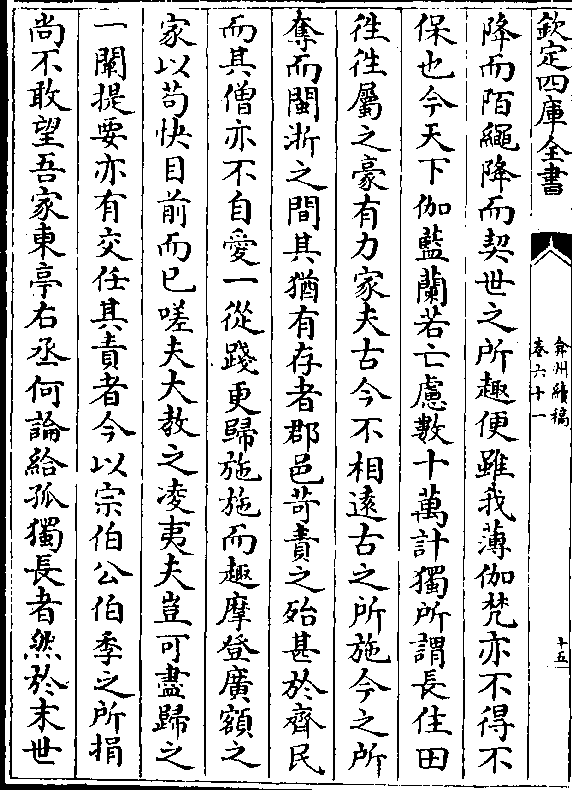 欽定四庫全書
弇州續稿
卷六十一
十五
降而陌繩降而契世之所趣便雖我薄伽梵亦不得不
保也今天下伽藍蘭若亡慮數十萬計獨所謂長住田
徃徃屬之豪有力家夫古今不相遠古之所施今之所
奪而閩浙之間其猶有存者郡邑苛責之殆甚於齊民
而其僧亦不自愛一從踐更歸施施而趣摩登廣額之
家以苟快目前而已嗟夫大教之凌夷夫豈可盡歸之
一闡提要亦有交任其責者今以宗伯公伯季之所捐
尚不敢望吾家東亭右丞何論給孤獨長者然於末世